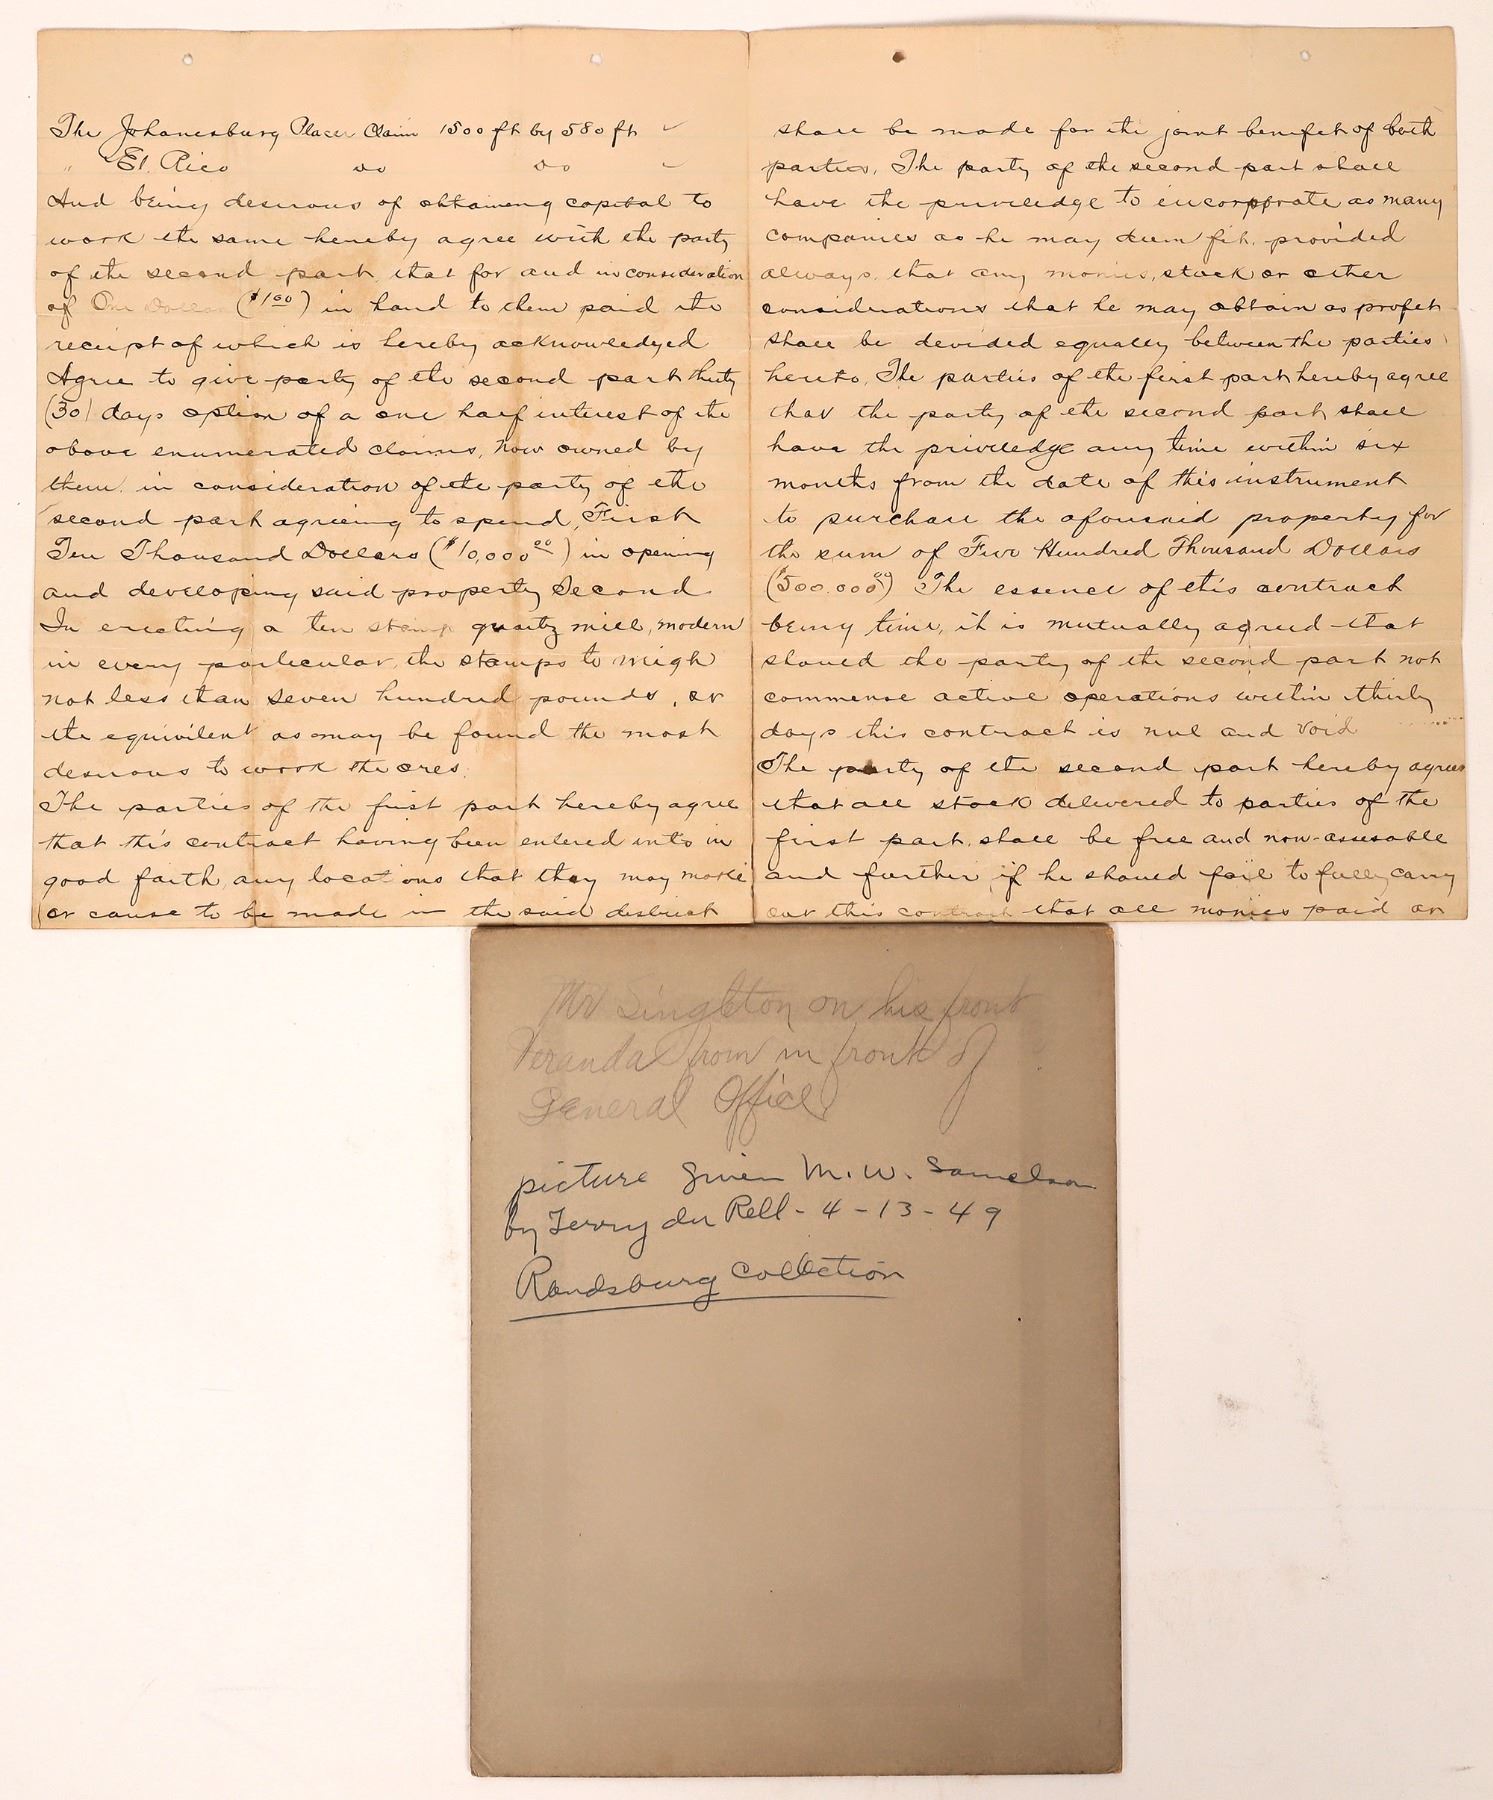 The Johanesburg Placer Claim 1500 ft by 580 ft ✓
" El Rico do do ✓
And being desirous of obtaineng capital to
work the same hereby agree with the party
of the second part, that for and in consideration
of One Dollar ($1.00) in hand to them paid the
receipt of which is hereby acknowledged
Agree to give party of the second part thirty
(30) days option of a one half interest of the
above enumerated claims, now owned by
them. in consideration of the party of the
second part agreeing to spend, First
Ten Thousand Dollars ($10,000.00) in opening
and developing said property Second
In erecting a ten stamp quartz mill, modern
in every particular, the stamps to weigh
not less than seven hundred pounds, or
the equivilent as may be found the most
desirous to work the ores.
The parties of the first part hereby agree
that this contract having been entered into in
good faith, any locations that they may make
or cause to be made in the said district
shall be made for the joint benifit of both
parties. The party of the second part shall
have the priveledge to incorporate as many
companies as he may deem fit, provided
always, that any monies, stock or other
considerations that he may obtain as profit
shall be devided equally between the parties
hereto. The parties of the first part hereby agree
that the party of the second part shall
have the priveledge any time within six
months from the date of this instrument
to purchase the aforesaid property for
the sum of Five Hundred Thousand Dollars
($500.000.00) The essence of this contract
being time, it is mutually agreed that
should the party of the second part not
commence active operations within thirty
days this contract is nul and void
The party of the second part hereby agrees
that all stock delivered to parties of the
first part, shall be free and non-assesable
and further, if he should fail to fully carry
out this contract that all monies paid or
Mr Singleton on his front
Veranda from in front of
General Office
picture given M. W. Samelson
by Terry de Rell - 4 - 13 - 49
Randsburg Collection